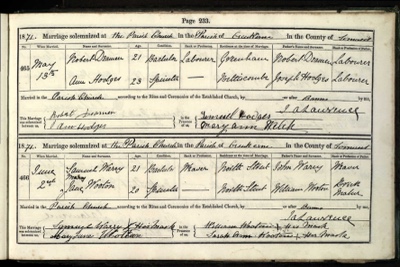 Page 233.
1871. Marriage solemnized at the Parish Church in the Parish of Crewkerne in the County of Somerset
No. When Married. Name and Surname. Age. Condition. Rank or Profession. Residence at the time of Marriage. Father's Name and Surname. Rank or Profession of Father.
465 May 13th Robert 21 Bachelor Labourer Robert Labourer
Ann Hodges 23 Spinster Joseph Hodges Labourer
Married in the Parish Church according to the Rites and Ceremonies of the Established Church, by after Banns by me,
J A Lawrence
This Marriage was solemnized between us, Robert Ann Hodges in the Presence of us, Hodges Mary Ann Welch
1871. Marriage solemnized at the Parish Church in the Parish of Crewkerne in the County of Somerset
No. When Married. Name and Surname. Age. Condition. Rank or Profession. Residence at the time of Marriage. Father's Name and Surname. Rank or Profession of Father.
466 June 2nd Samuel Warry 21 Bachelor Weaver North Street John Warry Weaver
Jane Wooton 20 Spinster North Street William Wooton Brick Maker
Married in the Parish Church according to the Rites and Ceremonies of the Established Church, by after Banns by me,
J A Lawrence
This Marriage was solemnized between us, Samuel Warry X His Mark Mary Jane Wootton in the Presence of us, William Wootton X His Mark Sarah Ann Wootton X Her Mark